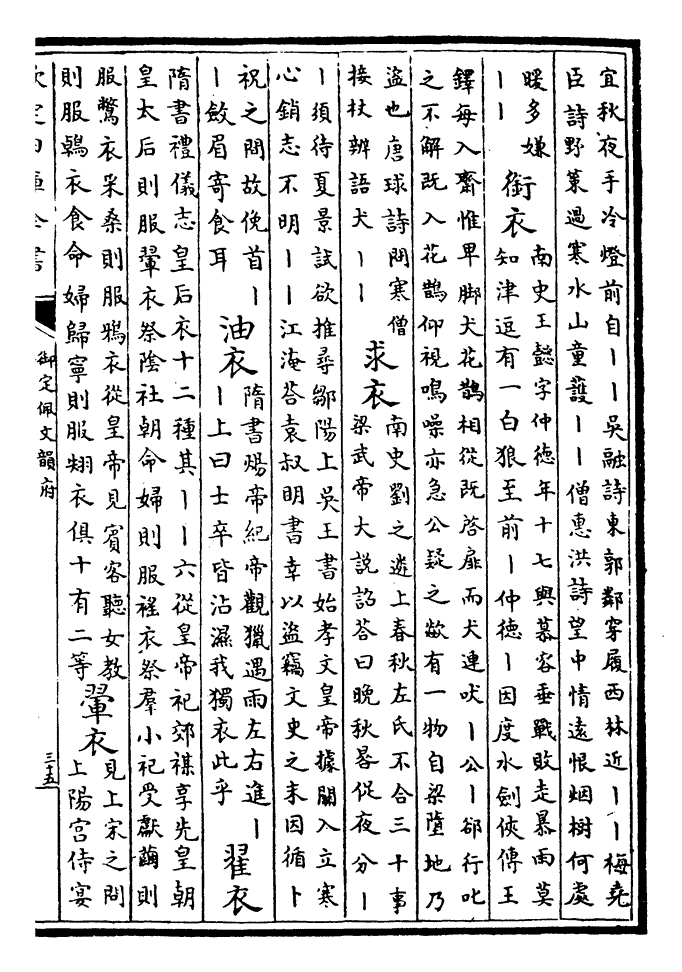 宜秋夜手冷燈前自丨丨吳融詩東郭鄰穿履西林近丨丨梅堯
臣詩野菓過寒水山童護丨丨僧惠洪詩望中情逺恨烟樹何處
暖多嫌
丨丨
銜衣
南史王懿字仲徳年十七與慕容垂戰敗走暴雨莫
知津逗有一白狼至前丨仲徳丨因度水劍俠傳王
鐸每入齋惟卑脚犬花鵲相從既啓扉而犬連吠丨公丨郤行叱
之不解既入花鵲仰視鳴噪亦急公疑之歘有一物自梁墮地乃
盜也唐球詩問寒僧
接杖辨語犬丨丨
求衣
南史劉之遴上春秋左氏不合三十事
梁武帝大説詔答曰晚秋晷促夜分丨
丨須待夏景試欲推尋鄒陽上吳王書始孝文皇帝據關入立寒
心銷志不明丨丨江淹答袁叔明書幸以盜竊文史之末因循卜
祝之間故俛首丨
丨斂眉寄食耳
油衣
隋書煬帝紀帝觀獵遇雨左右進丨
丨上曰士卒皆沾濕我獨衣此乎
翟衣
隋書禮儀志皇后衣十二種其丨丨六從皇帝祀郊禖享先皇朝
皇太后則服翬衣祭陰社朝命婦則服衣祭羣小祀受獻繭則
服鷩衣采桑則服鳪衣從皇帝見賓客聽女教
則服鵫衣食命婦歸寧則服翐衣俱十有二等
翬衣
見上宋之問
上陽宫侍宴
欽定四庫全書
御定佩文韻府
三十五